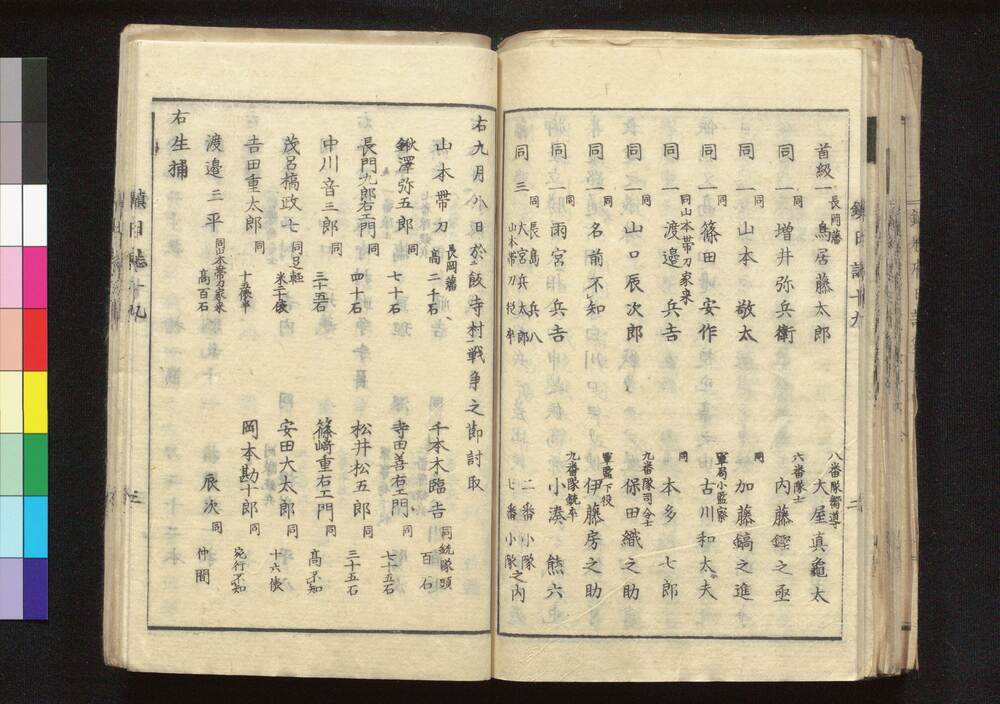 首級一 長岡藩 鳥居藤太郎 八番隊嚮導 大屋真龜太
同 一 同 増井弥兵衛 六番隊士 内藤鏗之亟
同 一 同 山本敬太 同 加藤鎬之進
同 一 同 篠田安作 軍局小監察 古川和太夫
同 一 同山本帯刀家来 渡邉兵吉 同 本多七郎
同 一 同 山口辰次郎 九番隊司令士 保田織之助
同 一 名前不知 軍監下役 伊藤房之助
同 一 同 雨宮相兵吉 九番隊銃卒 小湊熊六
同 三 同 長島兵八 二番小隊
大宮兵太郎 七番小隊之内
山本帯刀役卒
右九月八日於飯寺村戦争之節討取
山本帯刀 長岡藩 高二千石 千本木臨吉 同銃隊頭 百石
鍬澤弥五郎 同 七十石 寺田善右エ門 同 七十五石
長門九郎右エ門 同 四十石 松井松五郎 同 三十五石
中川音三郎 同 三十五石 篠﨑重右エ門 同 高不知
茂呂橋政七 同足軽 米二十俵 安田大太郎 同 十六俵
吉田重太郎 同 十五俵 岡本勘十郎 同 宛行不知
渡邉三平 同山本帯刀家来 高百石 辰次 同 仲間
右生捕